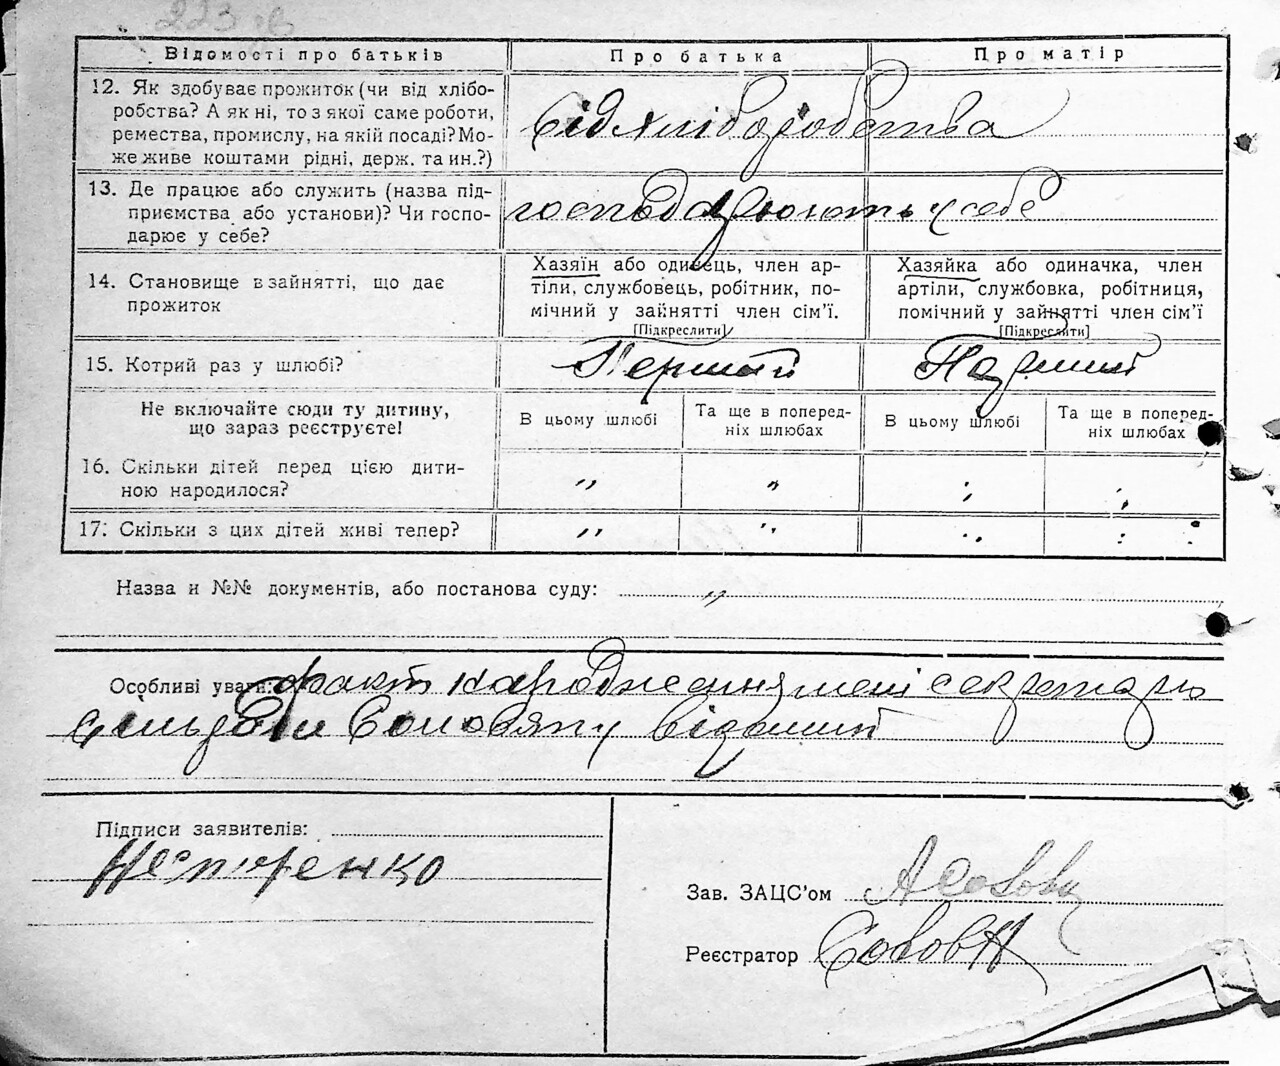 223 зв
Відомості про батьків
Про батька
Про матір
12. Як здобуває прожиток (чи від хлібо-
робства? А як ні, то з якої саме роботи,
ремества, промислу, на якій посаді? Мо-
же живе коштами рідні, держ. та ин.?)
від хліборобства
13. Де працює або служить (назва під-
приємства або установи)? Чи госпо-
дарює у себе?
господарюють у себе
14. Становище в зайнятті, що дає
прожиток
Хазяїн або одинець, член ар-
тілі, службовець, робітник, по-
мічний у зайнятті член сім'ї.
[Підкреслити]
Хазяйка або одиначка, член
артіли, службовка, робітниця,
помічний у зайнятті член сім'ї
[Підкреслити]
15. Котрий раз у шлюбі?
Перший
Перший
Не включайте сюди ту дитину,
що зараз реєструєте!
В цьому шлюбі
Та ще в поперед-
ніх шлюбах
В цьому шлюбі
Та ще в поперед-
ніх шлюбах
16. Скільки дітей перед цією дити-
ною народилося?
" " " "
17. Скільки з цих дітей живі тепер?
" " " "
Назва и №№ документів, або постанова суду: "
Особливі уваги: факт народження мені секретарю
сільради Соловяну відомий
Підписи заявителів:
Нестеренко
Зав. ЗАЦС'ом
Реєстратор